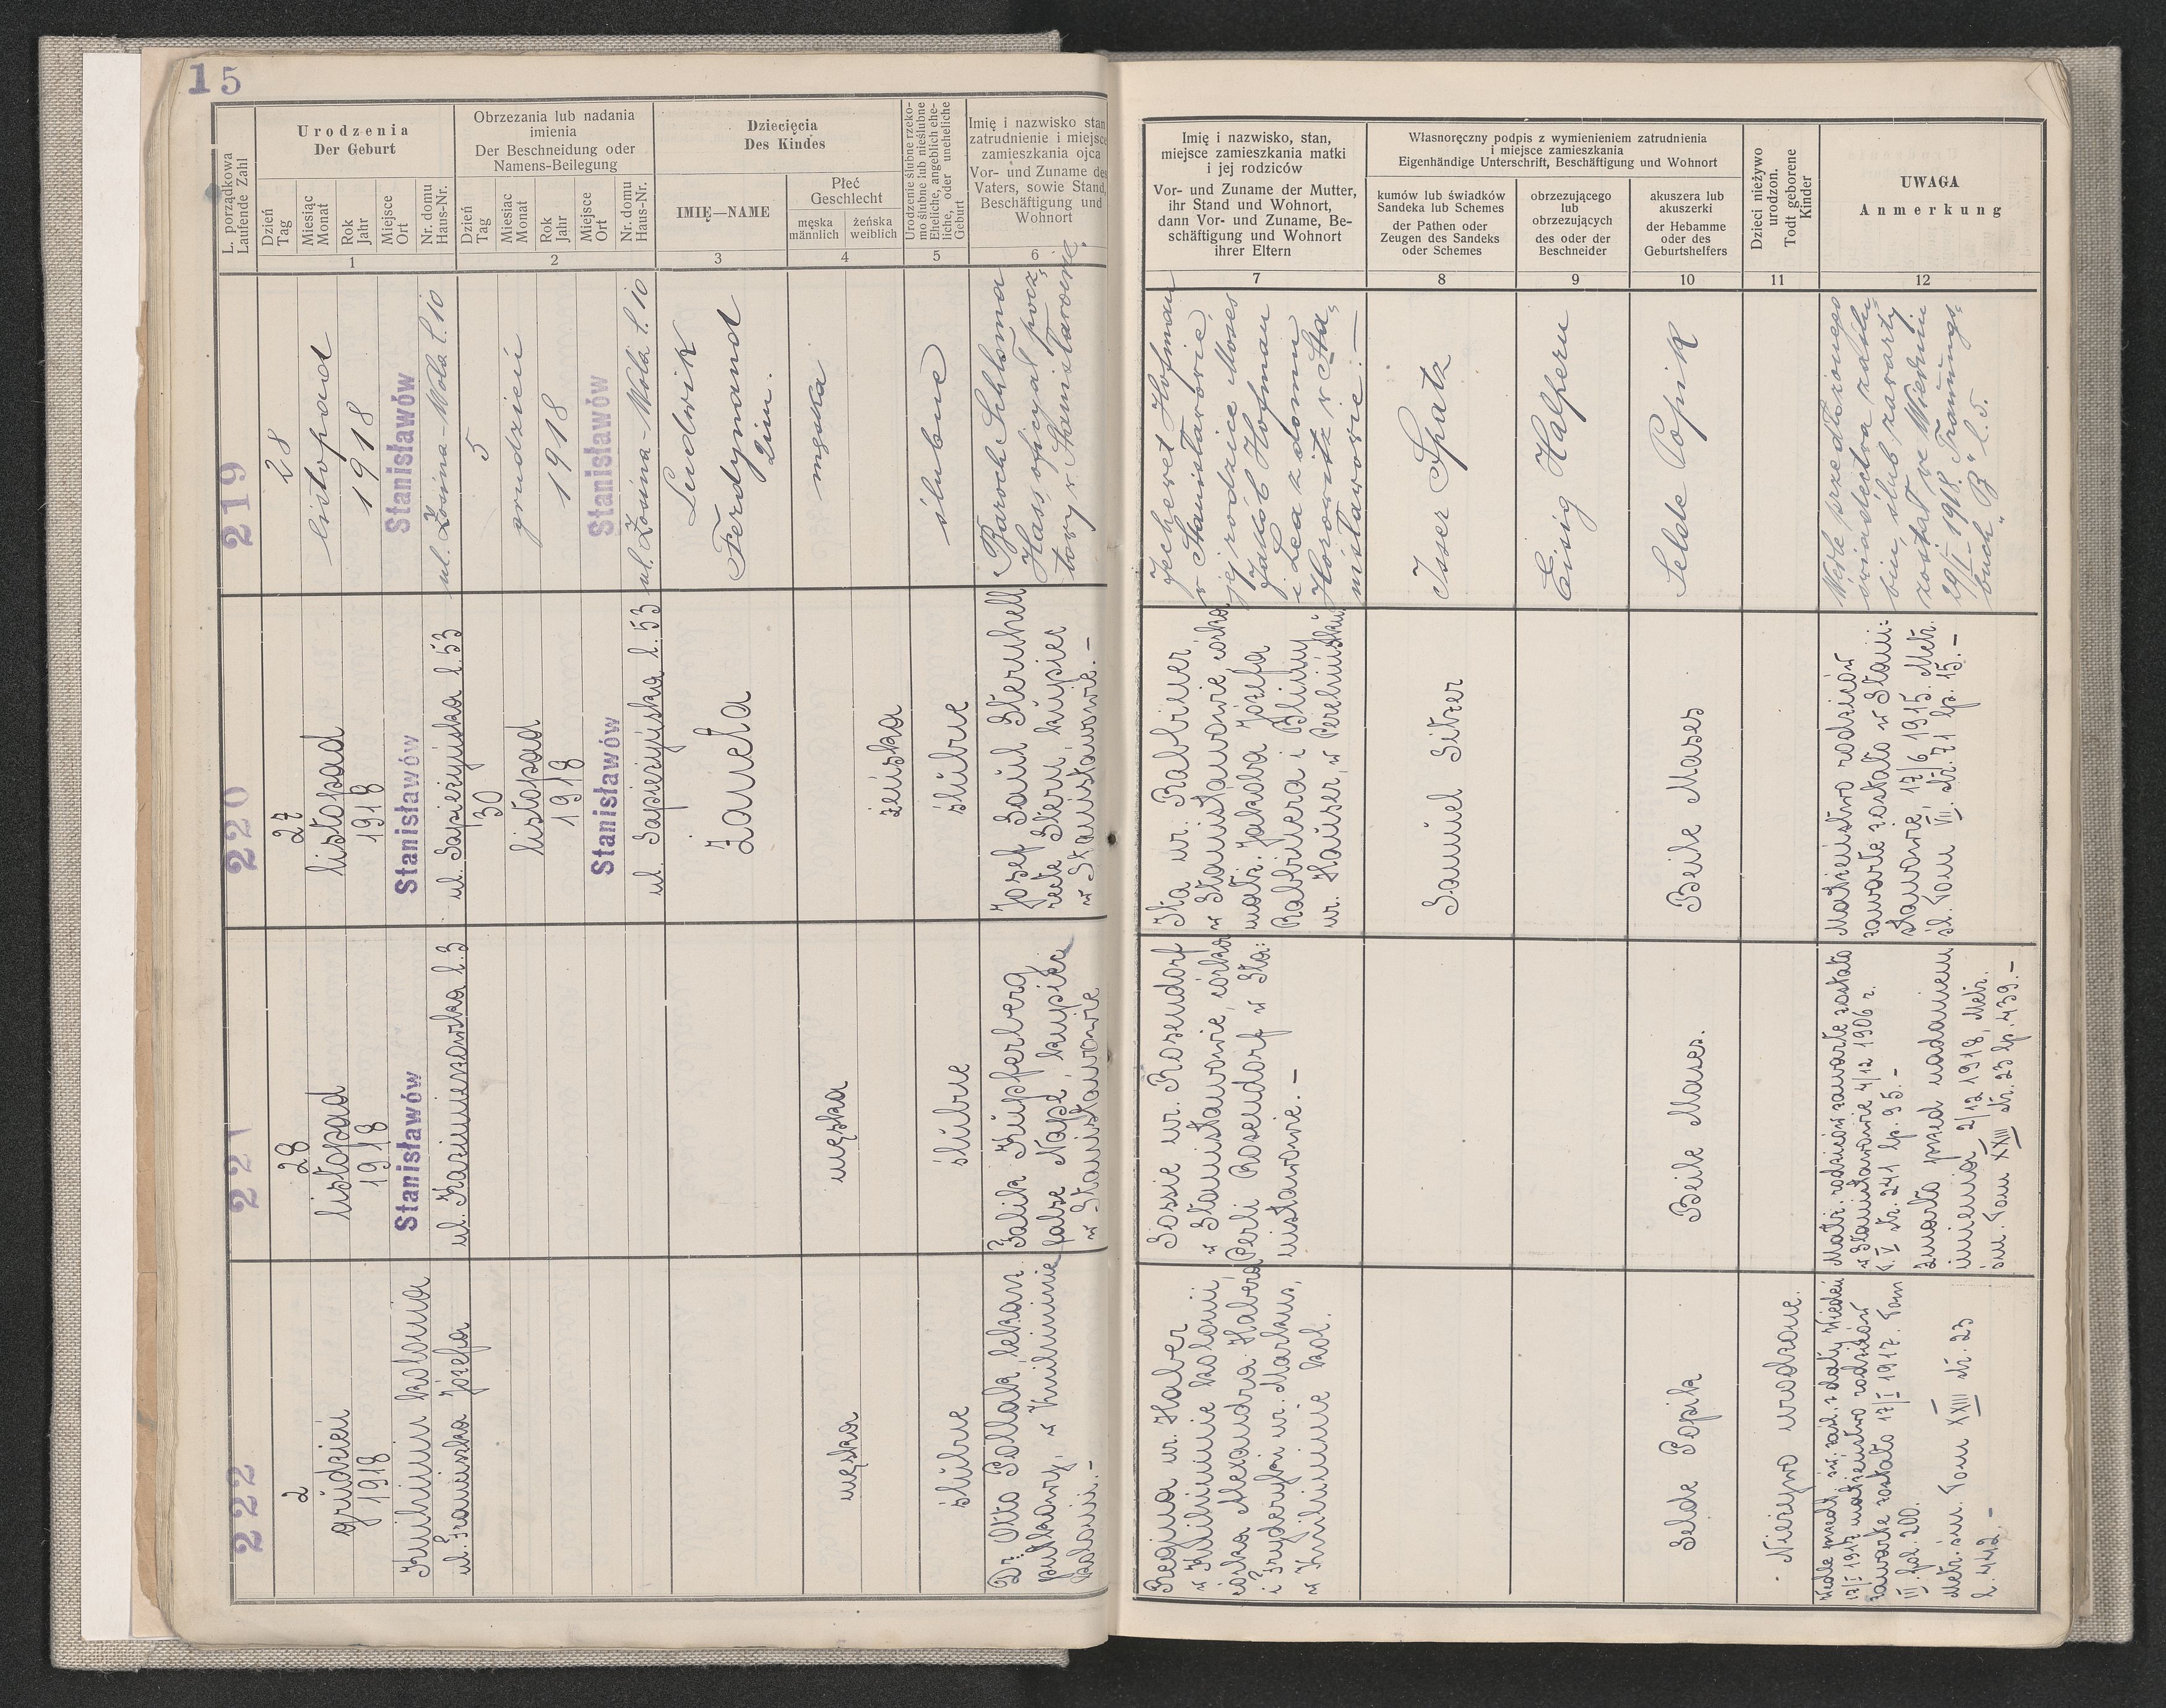 15
L. porządkowa
Laufende Zahl
Urodzenia
Der Geburt
Dzień
Tag
Miesiąc
Monat
Rok
Jahr
Miejsce
Ort
Nr. domu
Haus-Nr.
1
Obrzezania lub nadania
imienia
Der Beschneidung oder
Namens-Beilegung
Dzień
Tag
Miesiąc
Monat
Rok
Jahr
Miejsce
Ort
Nr. domu
Haus-Nr.
2
Dziecięcia
Des Kindes
IMIĘ—NAME
3
Płeć
Geschlecht
męska
männlich
żeńska
weiblich
4
Urodzenie ślubne rzeko-
mo ślubne lub nieślubne
Eheliche, angeblich ehe-
liche, oder uneheliche
Geburt
5
Imię i nazwisko stan
zatrudnienie i miejsce
zamieszkania ojca
Vor- und Zuname des
Vaters, sowie Stand,
Beschäftigung und
Wohnort
6
Imię i nazwisko, stan,
miejsce zamieszkania matki
i jej rodziców
Vor- und Zuname der Mutter,
ihr Stand und Wohnort,
dann Vor- und Zuname, Be-
schäftigung und Wohnort
ihrer Eltern
7
Własnoręczny podpis z wymienieniem zatrudnienia
i miejsce zamieszkania
Eigenhändige Unterschrift, Beschäftigung und Wohnort
kumów lub świadków
Sandeka lub Schemes
der Pathen oder
Zeugen des Sandeks
oder Schemes
8
obrzezującego
lub
obrzezujących
des oder der
Beschneider
9
akuszera lub
akuszerki
der Hebamme
oder des
Geburtshelfers
10
Dzieci nieżywo
urodzon.
Todt geborene
Kinder
11
UWAGA
Anmerkung
12
219
28
listopad
1918
Stanisławów
ul. Żosina-Wola l. 10
5
grudzień
1918
Stanisławów
ul. Żosina-Wola l. 10
Ludwik
Ferdynand
2im.
męska
ślubne
Baroch Schloma
Hass, oficyał pocz=
towy w Stanisławowie.
Jecheret Hofman
w Stanisławowie,
jej rodzice Moses
Jakob Hofman
i Lea z domu
Horowitz w Sta=
nisławowie.—
Isser Spatz
Eisig Halpern
Selde Popik
Wedle przedłożonego
świadectwa zaślu=
bin, ślub zawarty
został we Wiedniu
29/I 1918. Trauungs=
buch „B" l. 5.
220
27
listopad
1918
Stanisławów
ul. Sapieżyńska l. 53
30
listopad
1918
Stanisławów
ul. Sapieżyńska l. 53
Żaneta
żeńska
ślubne
Josef Saul Sternhell
recte Stern, kupiec
w Stanisławowie.—
Ita ur. Rabbiner,
w Stanisławowie, córka
małż. Jakóba Józefa
Rabbinera i Blimy
ur. Hauser, w Perehińsku
Samuel Sitzer
Beile Mases
Małżeństwo rodziców
zawarte zostało w Stani:
sławowie, 17/6 1915. Metr.
śl. Tom VII. str. 71 lp. 15.—
221
28
listopad
1918
Stanisławów
ul. Kazimierzowska l. 3
męska
ślubne
Salik Kupferberg
false Nape, kupiec
w Stanisławowie
Sossie ur. Rosendorf
w Stanisławowie, córka
Perli Rosendorf w Sta:
nisławowie.—
Beile Mases.
Małż. rodziców zawarte zostało
w Stanisławowie 4/12 1906 r.
T. V. str. 241 lp. 95.—
Zmarło przed nadaniem
imienia, 2/12 1918, Metr.
śm. Tom XXIII str. 23 lp. 439.—
222
2
grudzień
1918
Knihinin kolonia
ul. Franciszka Józefa
męska
ślubne
Dr. Otto Pollak, lekarz
pułkowy, w Knihininie
kolonii.—
Regina ur. Haber
w Knihininie kolonii,
córka Alexandra Habera
i Fryderyki ur. Markus,
w Knihininie kol.
Selde Popik
Nieżywo urodzone.
Wedle przedł. św. zaśl. z daty Wiedeń
17/I 1917 małżeństwo rodziców
zawarte zostało 17/I 1917. Tom
III. fol. 200.
Metr. śm. Tom XXIII str. 23
l. 442.—